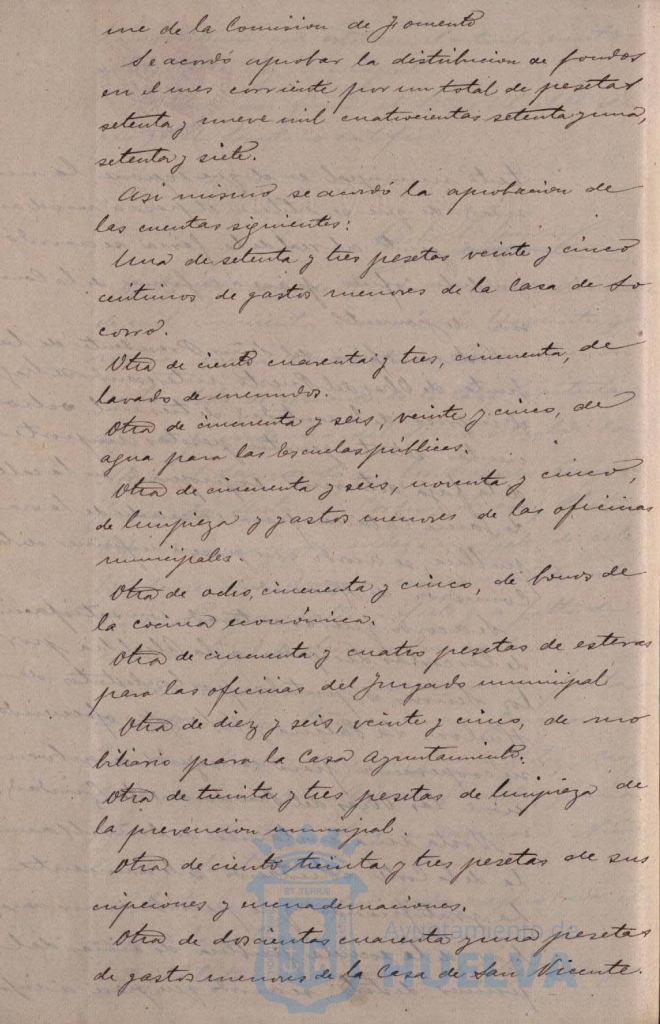 me de la Comision de Fomento
Se acordó aprobar la distribucion de fondos
en el mes corriente por un total de pesetas
setenta y nueve mil cuatrocientas setenta y una,
setenta y siete.
Asi mismo se acordó la aprobacion de
las cuentas siguientes:
Una de setenta y tres pesetas veinte y cinco
centimos de gastos menores de la Casa de So
corro.
Otra de ciento cuarenta y tres, cincuenta, de
lavado de menudos.
Otra de cincuenta y seis, veinte y cinco, de
agua para las Escuelas públicas.
Otra de cincuenta y seis, noventa y cinco,
de limpieza y gastos menores de las oficinas
municipales.
Otra de ocho, cincuenta y cinco, de bonos de
la cocina económica.
Otra de cincuenta y cuatro pesetas de esteras
para las oficinas del Juzgado municipal
Otra de diez y seis, veinte y cinco, de mo
biliario para la Casa Ayuntamiento.
Otra de treinta y tres pesetas de limpieza de
la prevencion municipal.
Otra de ciento treinta y tres pesetas de sus
cripciones y encuadernaciones.
Otra de doscientas cuarenta y una pesetas
de gastos menores de la Casa de San Vicente.
Ayuntamiento de
HUELVA